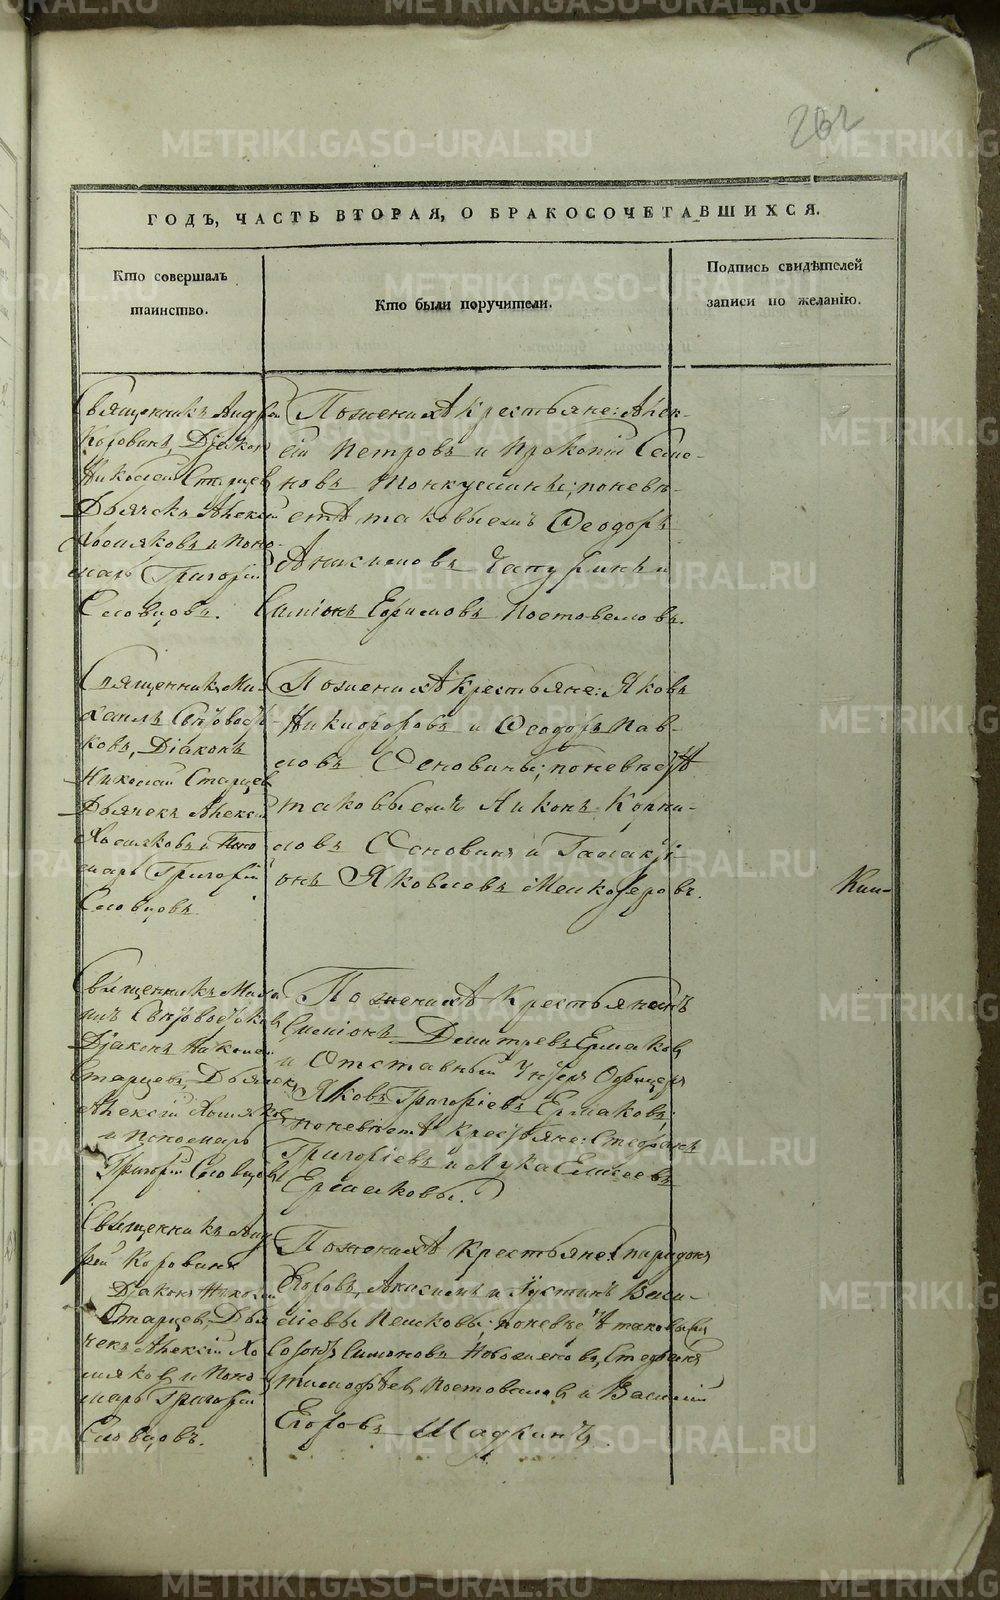 262
ГОДЪ, ЧАСТЬ ВТОРАЯ, О БРАКОСОЧЕТАВШИХСЯ.
Кто совершалъ
таинство.
Кто были поручители.
Подпись свидѣтелей
записи по желанію.
Священникъ Андрей
Коровинъ, Діаконъ
Николай Старцев
Дьячекъ Алексій
Хомяковъ и Поно-
марь Григорій
Словцовъ.
По женихѣ Крестьяне: Алек-
сій Петровъ и Прокопій Семе-
новъ Тонкушины; по невѣ-
стѣ таковыежъ Ѳеодоръ
Анисимовъ Чапуринъ и
Симіонъ Ефимовъ Постоваловъ.
Священникъ Ми-
хаилъ
ковъ, Діаконъ
Николай Старцев
Дьячекъ Алексій
Хомяковъ и Поно
марь Григорій
Словцовъ
По женихѣ Крестьяне: Яковъ
Никифоровъ и Ѳеодоръ Пав-
ловъ Осковины; по невѣстѣ
таковыежъ Корни-
ловъ и Галакті-
онъ Яковлевъ Мелкозеровъ.
Кли-
Священникъ Миха
илъ
Діаконъ Николай
Старцевъ, Дьячекъ
Алексій Хомяков
и Пономарь
Григорій Словцовъ
По женихѣ Крестьянинъ
Симіонъ Димитревъ Ермаков
и Отставный Унтеръ Офицеръ
Яковъ Григоріевъ Ермаковъ;
по невѣстѣ Крестьяне: Стефанъ
Григоріевъ и Лука Елисеевъ
Ермаковы.
Священникъ Анд
рей Коровинъ
Діаконъ Николай
Старцев, Дья
чекъ Алексій Хо
мяков и Поно
марь Григорій
Словцовъ.
По женихѣ Крестьяне: Спиридонъ
Егоровъ, и Іустинъ Васи-
ліевы Пешковы; по невѣстѣ таковыежъ
Созонтъ Симоновъ Новоселовъ, Стефанъ
Тимофѣев Постовалов и Василій
Егоровъ Шадринъ.
METRIKI.GASO-URAL.RU